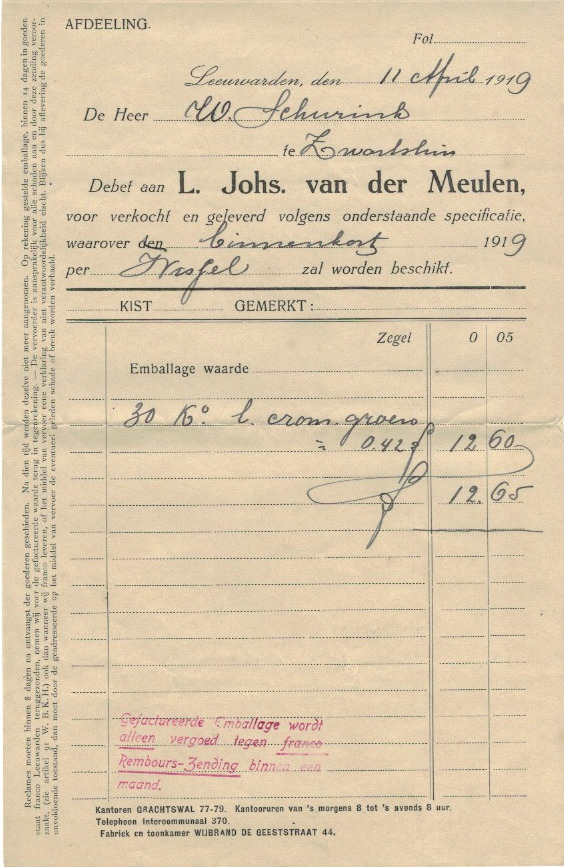 AFDEELING.
Fol
Leeuwarden, den 11 April 1919
De Heer W. Schurink
te Zwartsluis
Debet aan L. Johs. van der Meulen,
voor verkocht en geleverd volgens onderstaande specificatie,
waarover den binnenkort 1919
per Wissel zal worden beschikt.
KIST GEMERKT:
Zegel 0 05
Emballage waarde
30 Ko. l. crom. groen
= 0.42 f 12 60
f 12.65
Gefactureerde Emballage wordt
alleen vergoed tegen franco
Rembours-Zending binnen een
maand.
Kantoren GRACHTSWAL 77-79. Kantooruren van 's morgens 8 tot 's avonds 8 uur.
Telephoon Intercommunaal 370.
Fabriek en toonkamer WIJBRAND DE GEESTSTRAAT 44.
Reclames moeten binnen 8 dagen na ontvangst der goederen geschieden. Na dien tijd worden dezelve niet meer aangenomen. Op rekening gestelde emballage, binnen 14 dagen in goeden
staat franco Leeuwarden teruggezonden, nemen wij voor de gefactureerde waarde terug in tegenrekening. — De vervoerder is aansprakelijk voor alle schaden aan en door deze zending veroor-
zaakt, (zie artikel 91 W. B. K. H.) ook dan wanneer wij franco leveren, of het middel van vervoer eene verklaring van niet verantwoordelijkheid eischt. Blijken dus bij aflevering de goederen in
onvoldoende toestand, dan moet door de geadresseerde op het middel van vervoer de eventueel geleden schade of breuk worden verhaald.